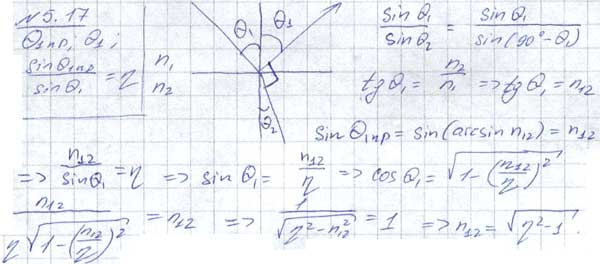 №5.17
θ₁пр, θ₁;
sinθ₁пр / sinθ₁ = η
θ₁ θ₁
n₁
n₂
θ₂
sinθ₁ / sinθ₂ = sinθ₁ / sin(90°-θ₁)
tgθ₁ = n₂/n₁ => tgθ₁ = n₁₂
sinθ₁пр = sin(arcsin n₁₂) = n₁₂
=> n₁₂ / sinθ₁ = η => sinθ₁ = n₁₂/η => cosθ₁ = √(1-(n₁₂/η)²)
n₁₂ / (η√(1-(n₁₂/η)²)) = n₁₂ => 1 / √(η²-n₁₂²) = 1 => n₁₂ = √(η²-1).